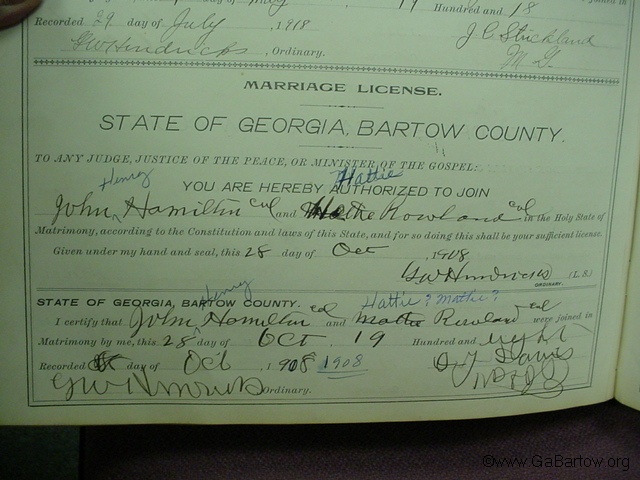 19 Hundred and 18
Recorded 29 day of July , 1918
J C Strickland
GW Hendricks , Ordinary. M G.
MARRIAGE LICENSE.
STATE OF GEORGIA, BARTOW COUNTY.
TO ANY JUDGE, JUSTICE OF THE PEACE, OR MINISTER OF THE GOSPEL:
Henry Hattie
YOU ARE HEREBY AUTHORIZED TO JOIN
John Hamilton Col and Rowland Col in the Holy State of
Matrimony, according to the Constitution and laws of this State, and for so doing this shall be your sufficient license.
Given under my hand and seal, this 28 day of Oct , 1908
GW Hendricks (L. S.)
ORDINARY.
Henry Hattie? Mattie?
STATE OF GEORGIA, BARTOW COUNTY.
I certify that John Hamilton Col and Mattie Rowland Col were joined in
Matrimony by me, this 28 day of Oct, 19 Hundred and eight
Recorded day of Oct , 1908 1908
GW Hendricks Ordinary.
©www.GaBartow.org